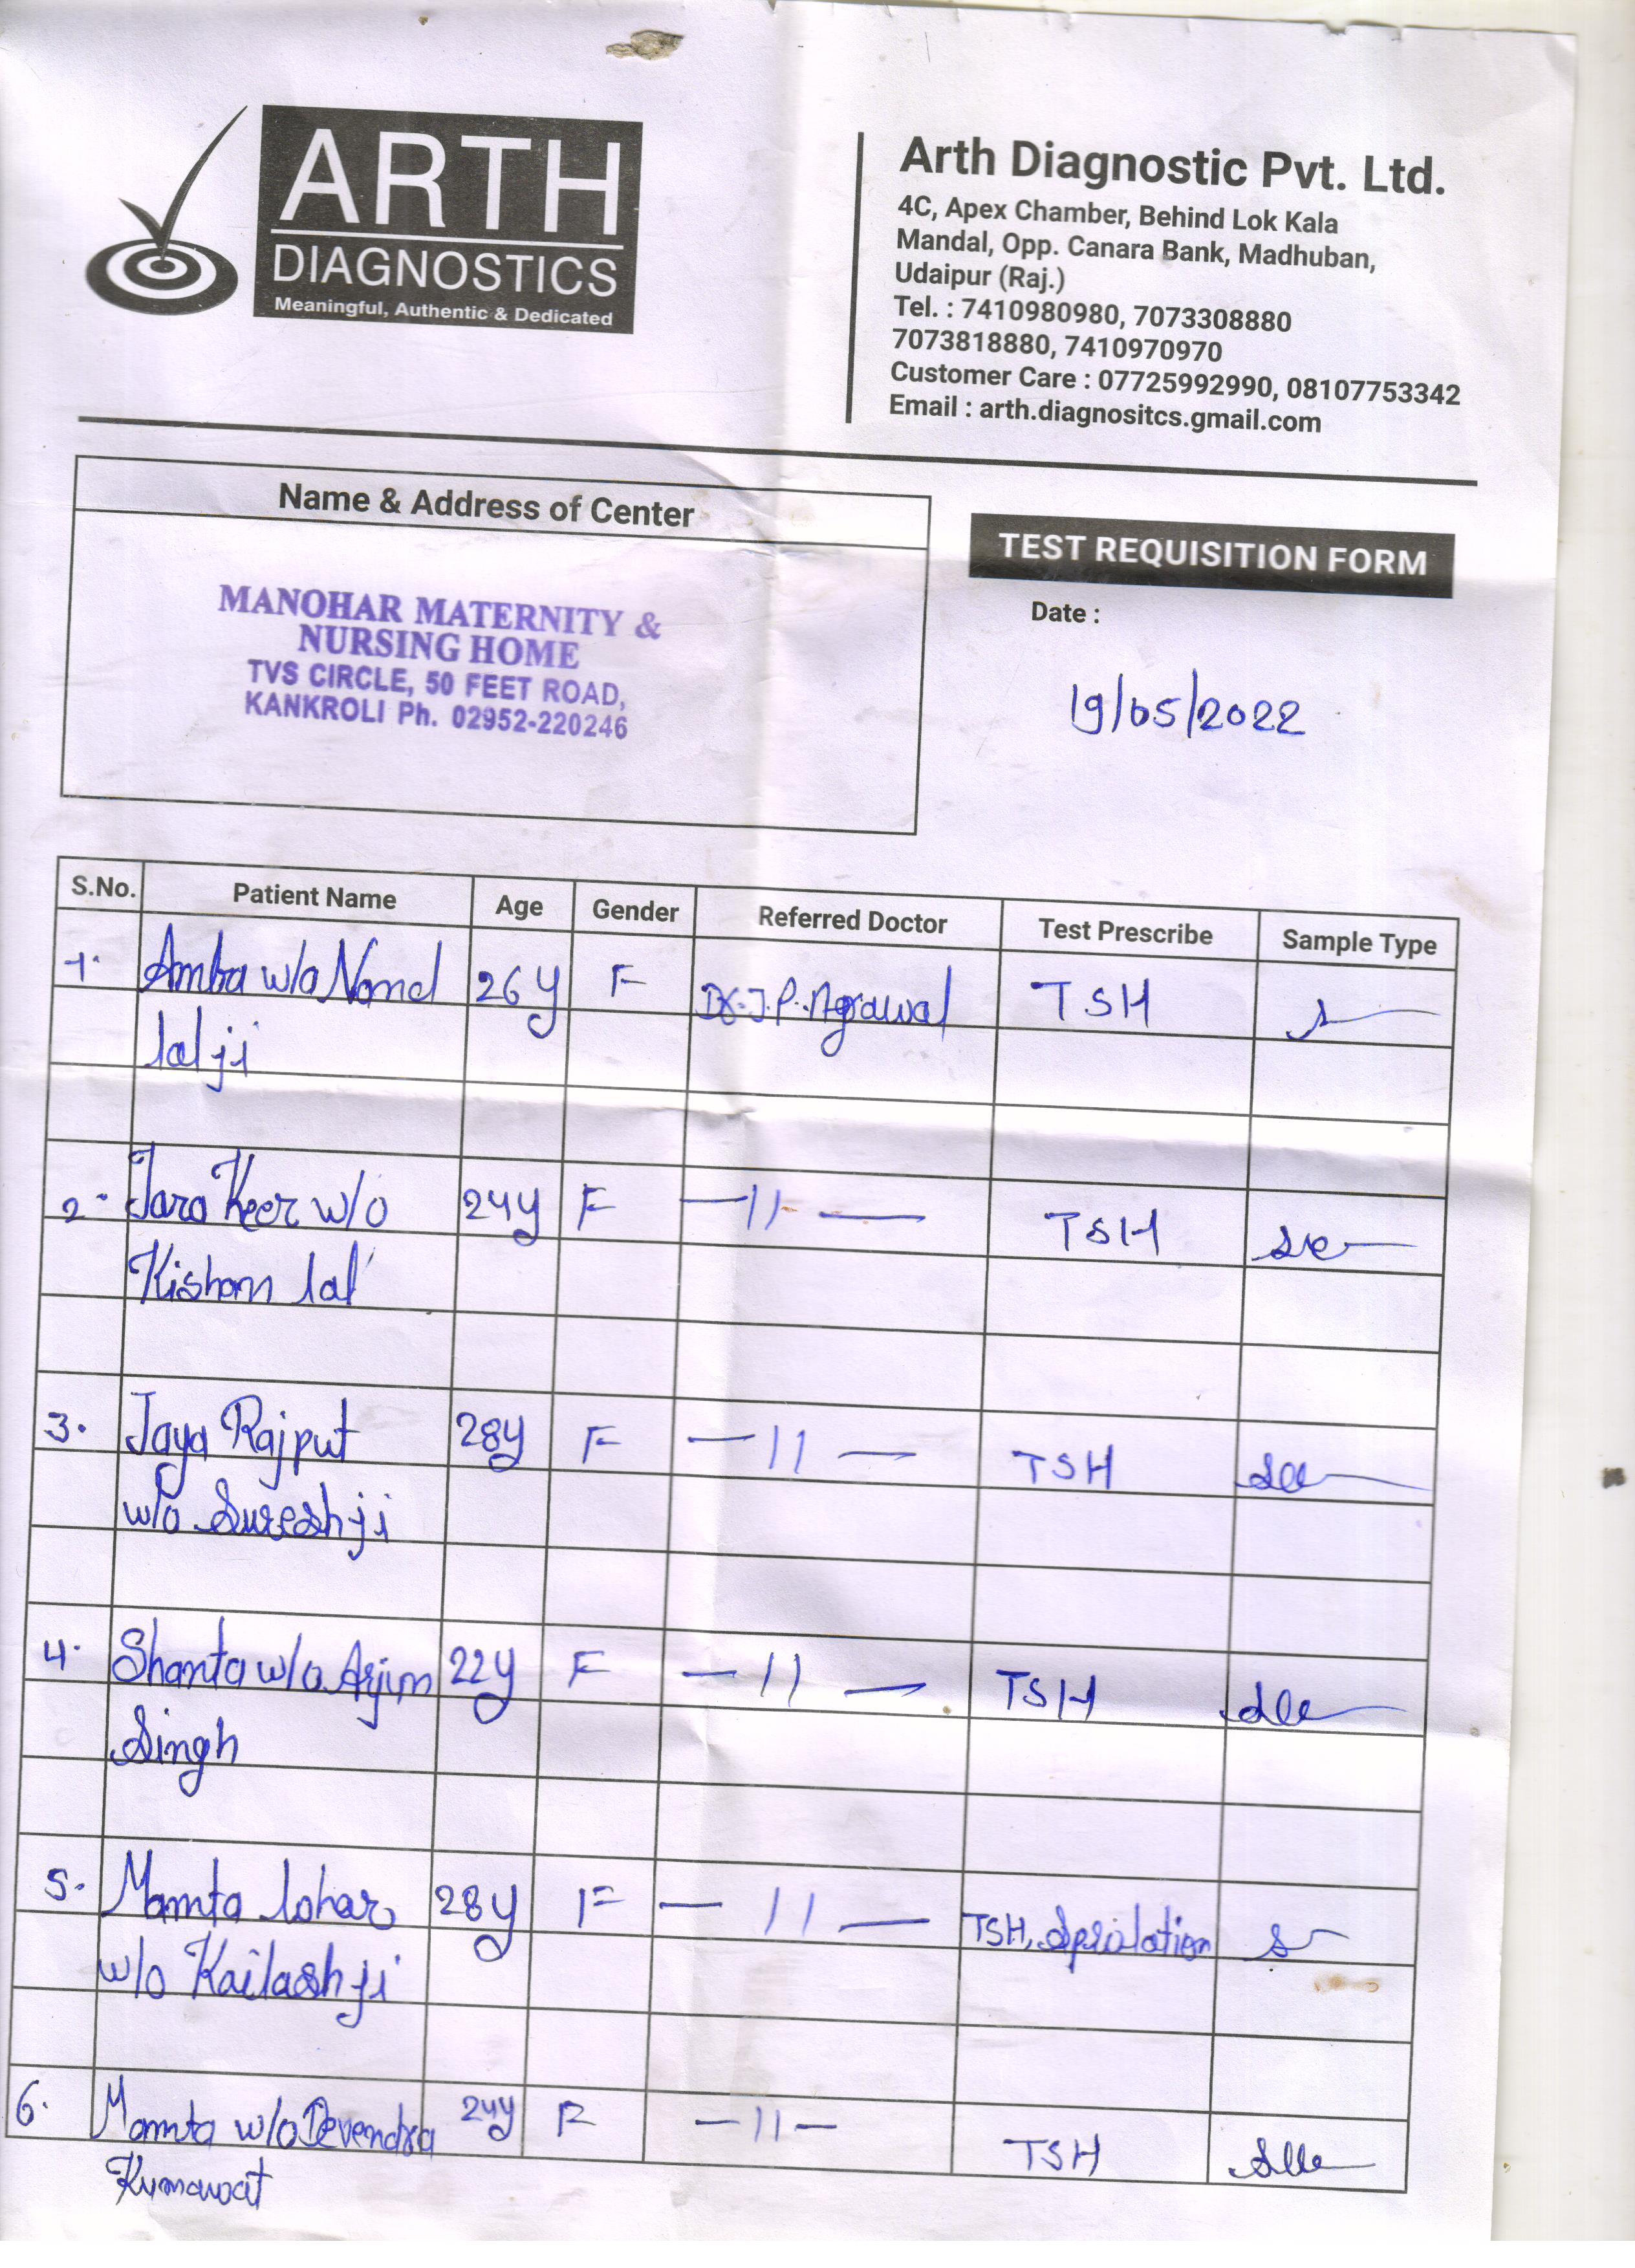 ARTH
DIAGNOSTICS
Meaningful, Authentic & Dedicated
Arth Diagnostic Pvt. Ltd.
4C, Apex Chamber, Behind Lok Kala
Mandal, Opp. Canara Bank, Madhuban,
Udaipur (Raj.)
Tel. : 7410980980, 7073308880
7073818880, 7410970970
Customer Care : 07725992990, 08107753342
Email : arth.diagnositcs.gmail.com
Name & Address of Center
MANOHAR MATERNITY &
NURSING HOME
TVS CIRCLE, 50 FEET ROAD,
KANKROLI Ph. 02952-220246
TEST REQUISITION FORM
Date :
19/05/2022
S.No. Patient Name Age Gender Referred Doctor Test Prescribe Sample Type
1. Amba w/o Nand 26y F Dr. J.P. Agrawal TSH
lal ji
2. Tara Keer w/o 24y F —11— TSH
Kishan lal
3. Jaya Rajput 28y F —11— TSH
w/o Suresh ji
4. Shanta w/o Arjun 22y F —11— TSH
Singh
5. Mamta lohar 28y F —11— TSH,
w/o Kailash ji
6. Mamta w/o Devendra 24y F —11— TSH
Kumawat